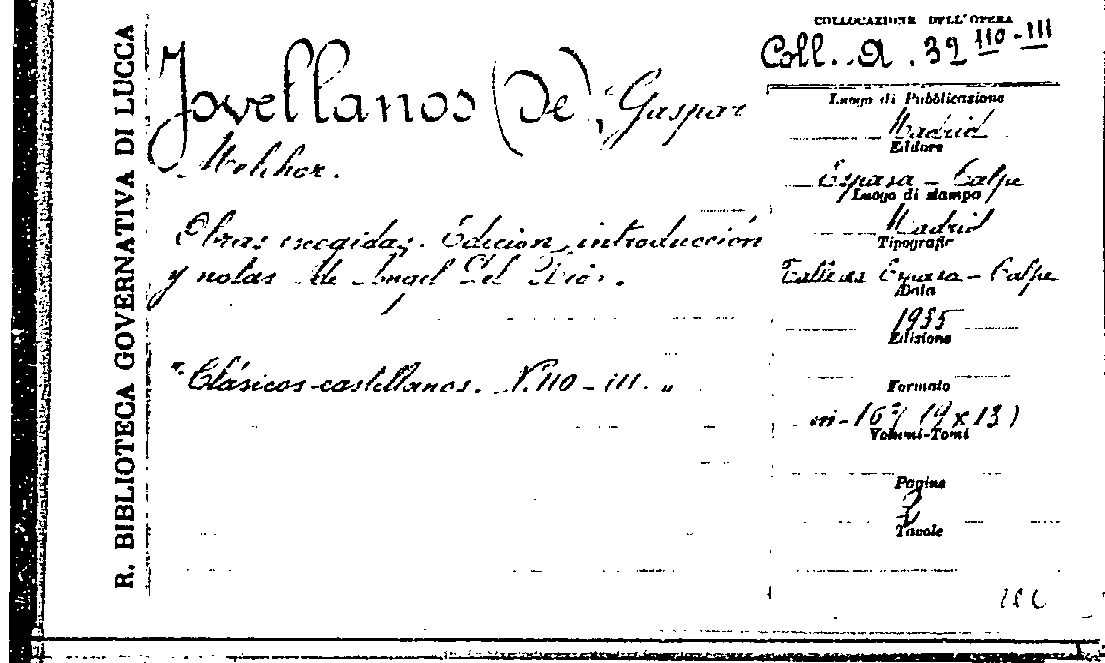 R. BIBLIOTECA GOVERNATIVA DI LUCCA
Jovellanos (De), Gaspar
Melchor.
Obras escogidas. Edición, introducción
y notas de Angel Del Rio.
"Clásicos castellanos. N. 110-111."
COLLOCAZIONE DELL'OPERA
Coll. A. 32 110-111
Luogo di Pubblicazione
Madrid
Editore
Espasa - Calpe
Luogo di stampa
Madrid
Tipografie
Talleres Espasa - Calpe
Data
1935
Edizione
Formato
in-16° (19x13)
Volumi-Tomi
Pagine
Tavole